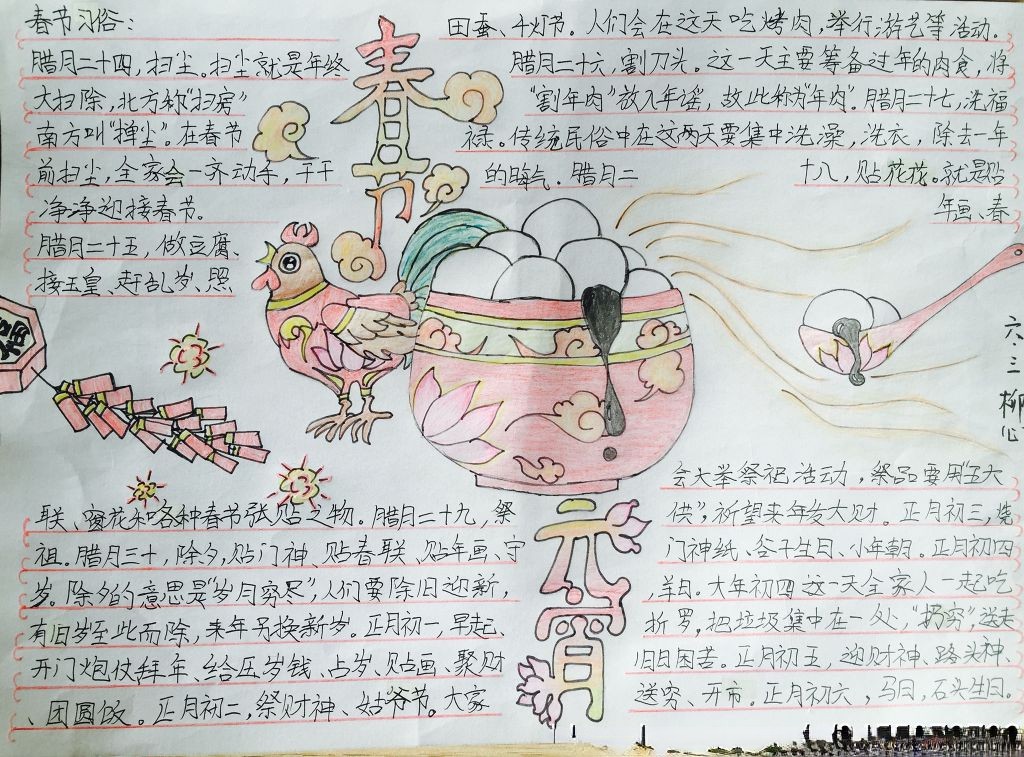 春节习俗:
腊月二十四，扫尘。扫尘就是年终
大扫除，北方称“扫房”
南方叫“掸尘”。在春节
前扫尘，全家会一齐动手，干干
净净迎接春节。
腊月二十五，做豆腐、
接玉皇、赶乱岁、照
春节
田蚕、千灯节。人们会在这天吃烤肉，举行游艺等活动.
腊月二十六，割刀头。这一天主要筹备过年的肉食，将
“割年肉”放入年谣，故此称为“年肉”. 腊月二十七，洗福
禄. 传统民俗中在这两天要集中洗澡，洗衣，除去一年
的晦气. 腊月二十八，贴花花。就是贴
年画、春
福
六.三
柳
联、窗花和各种春节张贴之物. 腊月二十九，祭
祖. 腊月三十，除夕，贴门神、贴春联、贴年画、守
岁。除夕的意思是“岁月穷尽”，人们要除旧迎新，
有旧岁至此而除，来年另换新岁. 正月初一，早起、
开门炮仗拜年、给压岁钱、占岁、贴画、聚财
、团圆饭。正月初二，祭财神、姑爷节。大家
元宵
会大举祭祀活动，祭品要用“五大
供”，祈望来年发大财. 正月初三，烧
门神纸、谷子生日、小年朝. 正月初四
，羊日。大年初四这一天全家人一起吃
折罗，把垃圾集中在一处，“扔穷”，送走
旧日困苦。正月初五，迎财神、路头神、
送穷、开市. 正月初六，马日，石头生日.